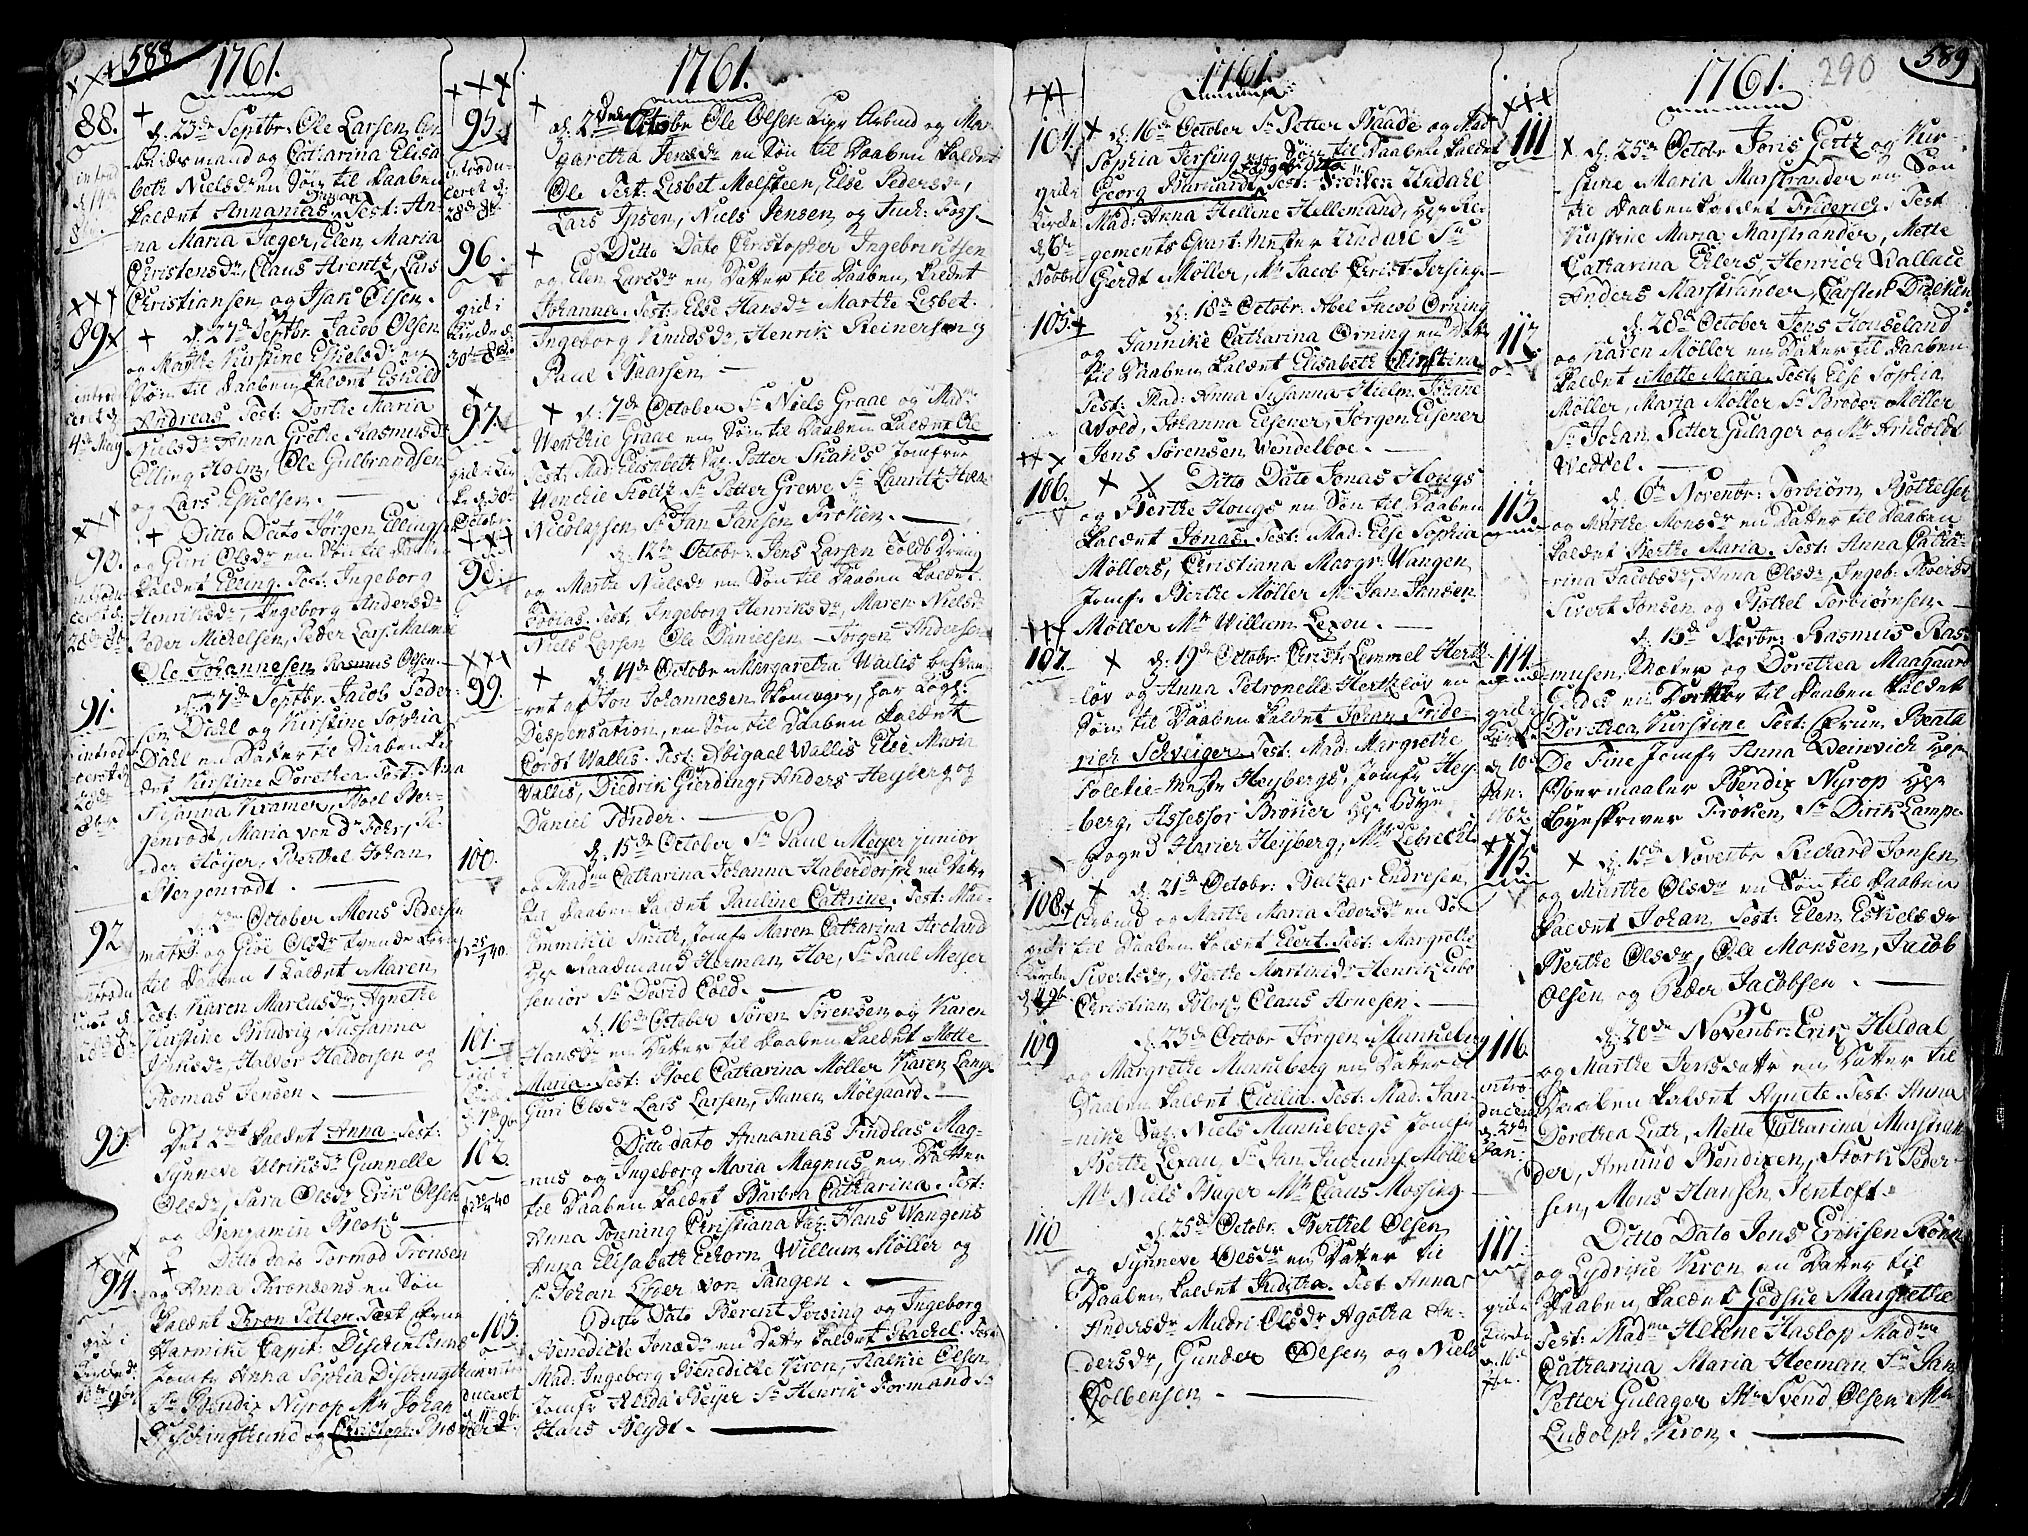 588
1761.
88.
d. 23de Septbr: Ole Larsen
mand og Catharina Elisa
beth Nielsdr en Søn til Daaben
Kaldet Annanias. Test: An-
na Maria Jæger, Elen Maria
Christensdr, Claus Arentz, Lars
Christiansen og Isak Olsen.
89
d. 27de Septbr. Jacob Olsen
og Marthe Kirstine Eskelsdr en
Søn til Daaben Kaldet Eskild
Andreas Test: Dorthe Maria
Nielsdr Anna Grethe Rasmusdr
Elling Holm, Ole Gulbrandsen
og Lars Eskelsen.
90.
Ditto Dato Jørgen Ellingsen
og Guri Olsdr en Søn til Daaben
Kaldet Elling. Test: Ingeborg
Henriksdr, Ingeborg Andersdr
Peder Michelsen, Peder Lars: Malmøe
Ole Johannesen Rasmus Olsen.
91.
d. 27de Septbr. Jacob Peder-
sen Dahl og Kirstine Sophia
Dahl en Datter til Daaben Kal
det Kirstine Dorethea. Test: Anna
Susanna Kramer, Abel Ber-
genrodt, Maria von der Fehr, Pe-
der Høyer, Berthel Johan
Bergenrodt.
92
d. 2den October Mons Pedersen
matr: og Giøe Olsdr tvende Børn
til Daaben 1 Kaldet Maren
Test: Karen Marcusdr, Agnethe
Kirstine Brudvig, Susanna
Jensdr, Halvor Haldorsen og
Thomas Jensen.
93.
Det 2det Kaldet Anna. Test:
Synneve Ulriksdr Gunnelle
Olsdr, Sara Olsdr Erik Olsen
og Benjamin Beck.
94.
Ditto dato Tormod Tronsen
og Anna Thronsens en Søn
Kaldet Thron Petter. Test:
Anna Sophia
Sr Bendix Nyrop Mr Johan
og Christoph:
1761.
95.
d. 2den Octobr Ole Olsen Kipr Arbud og Ma-
garetha Jensdr en Søn til Daaben Kaldet
Ole Test: Lisbet Molsteen, Else Pedersdr,
Lars Ipsen, Niels Jensen og
96.
Ditto Dato Christopher Ingebrictsen
og Elen Larsdr en Datter til Daaben, Kaldet
Johanna. Test: Else Hansdr Marthe Lisbet.
Ingeborg Knudsdr, Henrik Reinersen og
Paul Baarsen
97
d: 7de October Sr Niels Graae og Mad:
Wenchie Graae en Søn til Daaben Kaldet Ole
Test: Mad: Elisabeth Petter Jomfrue
Wenchie Holtz Sr Petter Grewe Sr Lauritz Han
Nicolaysen Sr Jan Jansen Frøken.
98.
d. 12te Octobr: Jens Larsen Toldb Dreng
og Martha Nielsdr en Søn til Daaben Kaldet.
Tobias. Test, Ingeborg Henriksdr, Maren Nielsdr
Niels Larsen Ole Danielsen Jørgen Andersen
99.
d. 14de October Mergaretha Wallis
ret af Jon Johannesen Skomager, har Kogl:
Despensation, en Søn til Daaben Kaldet
Cordt Wallis. Test: Abigael Wallis Else Maria
Wallis, Diedrik Gierding, Anders Heyberg og
Daniel Tønder.
100.
d. 15de October Sr Paul Meyer junior
og Madme Catharina Johanna Haberdorph en Datter
til Daaben Kaldet Pauline Cathrine. Test: Mad
Emmikie Smith, Jomfr Karen Catharina Aroland
Hr Raadmand Herman Hoe, Sr Paul Meyer
senior Sr David Cold.
101.
d. 16de October Søren Sørensen og Karen
Hansdr en Datter til Daaben Kaldet Mette
Maria. Test: Abel Catharina Møller Karen Lang
Guri Olsdr Lars Larsen, Hanen Mølgaard.
102.
Ditto dato Annanias Findlas Mag-
nus og Ingeborg Maria Magnus en Datter
til Daaben Kaldet Barbra Catharina. Test:
Anna Torning Christiana Sal: Hans Wangens
Anna Elisabeth Echorn Willum Møller og
Sr Johan Ejler von Tangen.
103.
Ditto Dato Berent Jersing og Ingeborg
Benedicte Jonædr en Datter Kaldet Rachel. Test:
Mad: Ingeborg Benedicte Kron, Kalkie Olsen
Jomfr Alida Beyer Sr Henrik Formand Sr
Hans Blydt.
1761.
104.
d. 16de October Sr Petter Baade og Mad
Sophia Jersing Søn til Daaben Kaldet
Georg Burchardt. Test: Frøken Undahl
Mad: Anna Hellene Hellemand, Hr Re-
gements Qvart: Mester Undahl Sr
Gerdt Møller, Mr Jacob Christ: Jersing.
105.
d: 18de Octobr Abel Jacob Ørning
og Jannike Catharina Ørning en Datr
til Daaben Kaldet Elisabeth Christina
Test: Mad: Anna Susanna Hielm Jomfr
Wold, Johanna Elsener, Jørgen Elsener
Jens Sørensen Wendelboe.
106.
Ditto Dato Jonas Hougs
og Berthe Hougs en Søn til Daaben
Kaldet Jonas. Test: Mad: Else Sophia
Møllers, Christiana Margr: Wangen
Jomfr Berthe Møller Mr Jan Jansen
Møller Mr Willum Lexau.
107.
d. 19de Octobr: Christ: Lemmel Herts-
løv og Anna Petronelle Hertzløv en
Søn til Daaben Kaldet Johan Fride-
rich Schveiger. Test: Mad: Margrethe
Politie-Mester Heybergs, Jomfr Hey-
berg, Assessor Brøner Hr Byge
Foged Harier Heyberg, Mr Lebrecht
108.
d. 21de Octobr: Balzar Endresen
Arbud og Marthe Maria Pedersdr en Søn
til Daaben Kaldet Elert. Test: Margrethe
Sivertsdr, Berthe Martinsdr Henrik Libo
Christian Block, Claus Arnesen.
109
d. 23de Octobr Jørgen Munkeberg
og Margrethe Munkeberg en Datter til
Daaben Kaldet Cicilia. Test: Mad: Jan-
nike Sal: Niels Munkebergs Jomfr
Berthe Lexau, Sr Jan Møller
Mr Niels Buger Mr Claus Mossing.
110
d. 25de Octobr. Berthel Olsen
og Synneve Olsdr en Datter til
Daaben Kaldet Juditha. Test Anna
Andersdr Mildri Olsdr Agatha An-
dersdr, Gunder Olsen og Niels
Colbensen.
1761. 290
589
111
d. 25de Octobr Joris Gertz og Kir-
stine Maria Marstrander en Søn
til Daaben Kaldet Friderich. Test:
Kirstine Maria Marstrander, Mette
Catharina Ehlers Henrich Wallace
Anders Marstrander, Carsten
112.
d. 28de October Jens Houseland
og Karen Møller en Datter til Daaben
Kaldet Mette Maria. Test: Else Sophia
Møller, Maria Møller Sr Broder Møller
Sr Johan Petter Gulager og Mr Arnholdt
Weddel.
113.
d. 6te Novenbr: Torbiørn Bothelsen
og Marthe Monsdr en Datter til Daaben
Kaldet Berthe Maria. Test: Anna Catha-
rina Jacobsdr, Anna Olsdr, Ingeb: Iversd
Sivert Jonsen og Bothel Torbiørnsen.
114.
d. 13de Novbr: Rasmus Ras-
musen, Væter og Dorethea Maagaard
Gides en Datter til Daaben Kaldet
Dorethea Kirstine Test: Frue Beata
De Fine Jomfr Anna Weinwich Hr
Overmaaler Bendix Nyrop Hr
Byeskriver Frøken, Sr Dirik Lampe
115.
d. 15de Novenbr Richard Jonsen
og Marthe Olsdr en Søn til Daaben
Kaldet Johan Test: Elen Eskelsdr
Berthe Olsdr, Ole Monsen, Jacob
Olsen og Peder Jacobsen.
116.
d. 20de Novenbr: Erik Heldal
og Marthe Jensdatter en Datter til
Daaben Kaldet Agnete. Test: Anna
Dorethea Lutz, Mette Catharina Marstran-
der, Amund Bendixen, Stork Peder-
sen, Mons Hansen Jentoft
117.
Ditto Dato Jens Erichsen Rønne
og Lydrike Kron en Datter til
Daaben, Kaldet Gedskie Margrethe
Test: Madme Helene Haslop Madme
Catharina Maria Heeman Sr Jan
Petter Gulager Mr Svend Olsen Mr
Ludolph Kron.